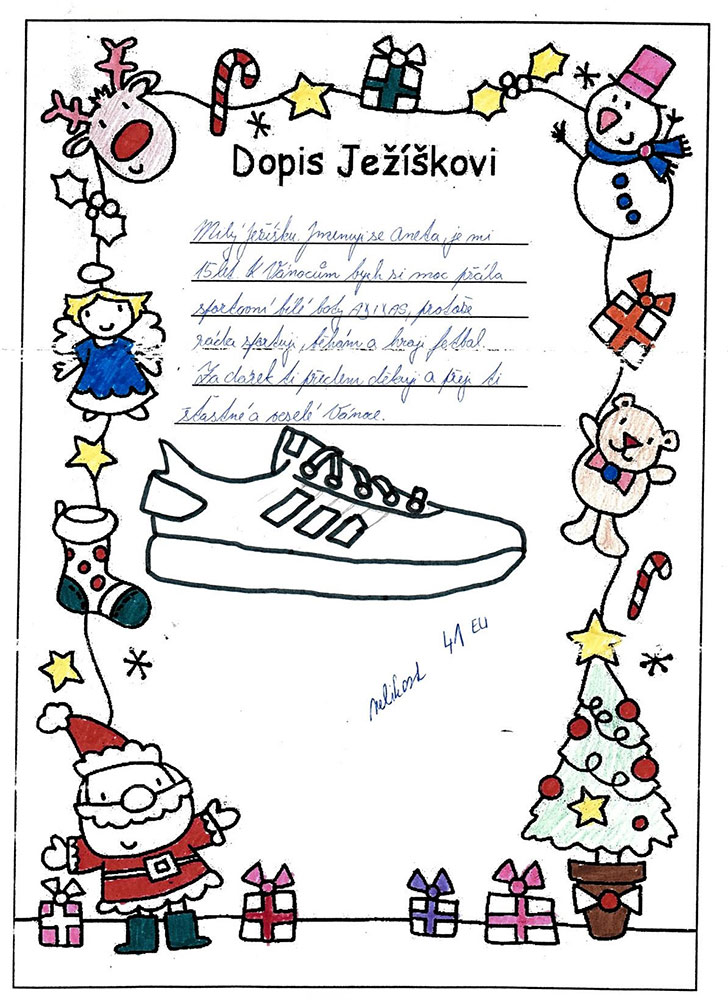 Dopis Ježíškovi
Milý Ježíšku. Jmenuji se Aneta, je mi
15 let. K Vánocům bych si moc přála
sportovní bílé boty ADIDAS, protože
ráda sportuji, běhám a hraji fotbal.
Za dárek ti předem děkuji a přeji ti
šťastné a veselé Vánoce.
velikost 41 EU